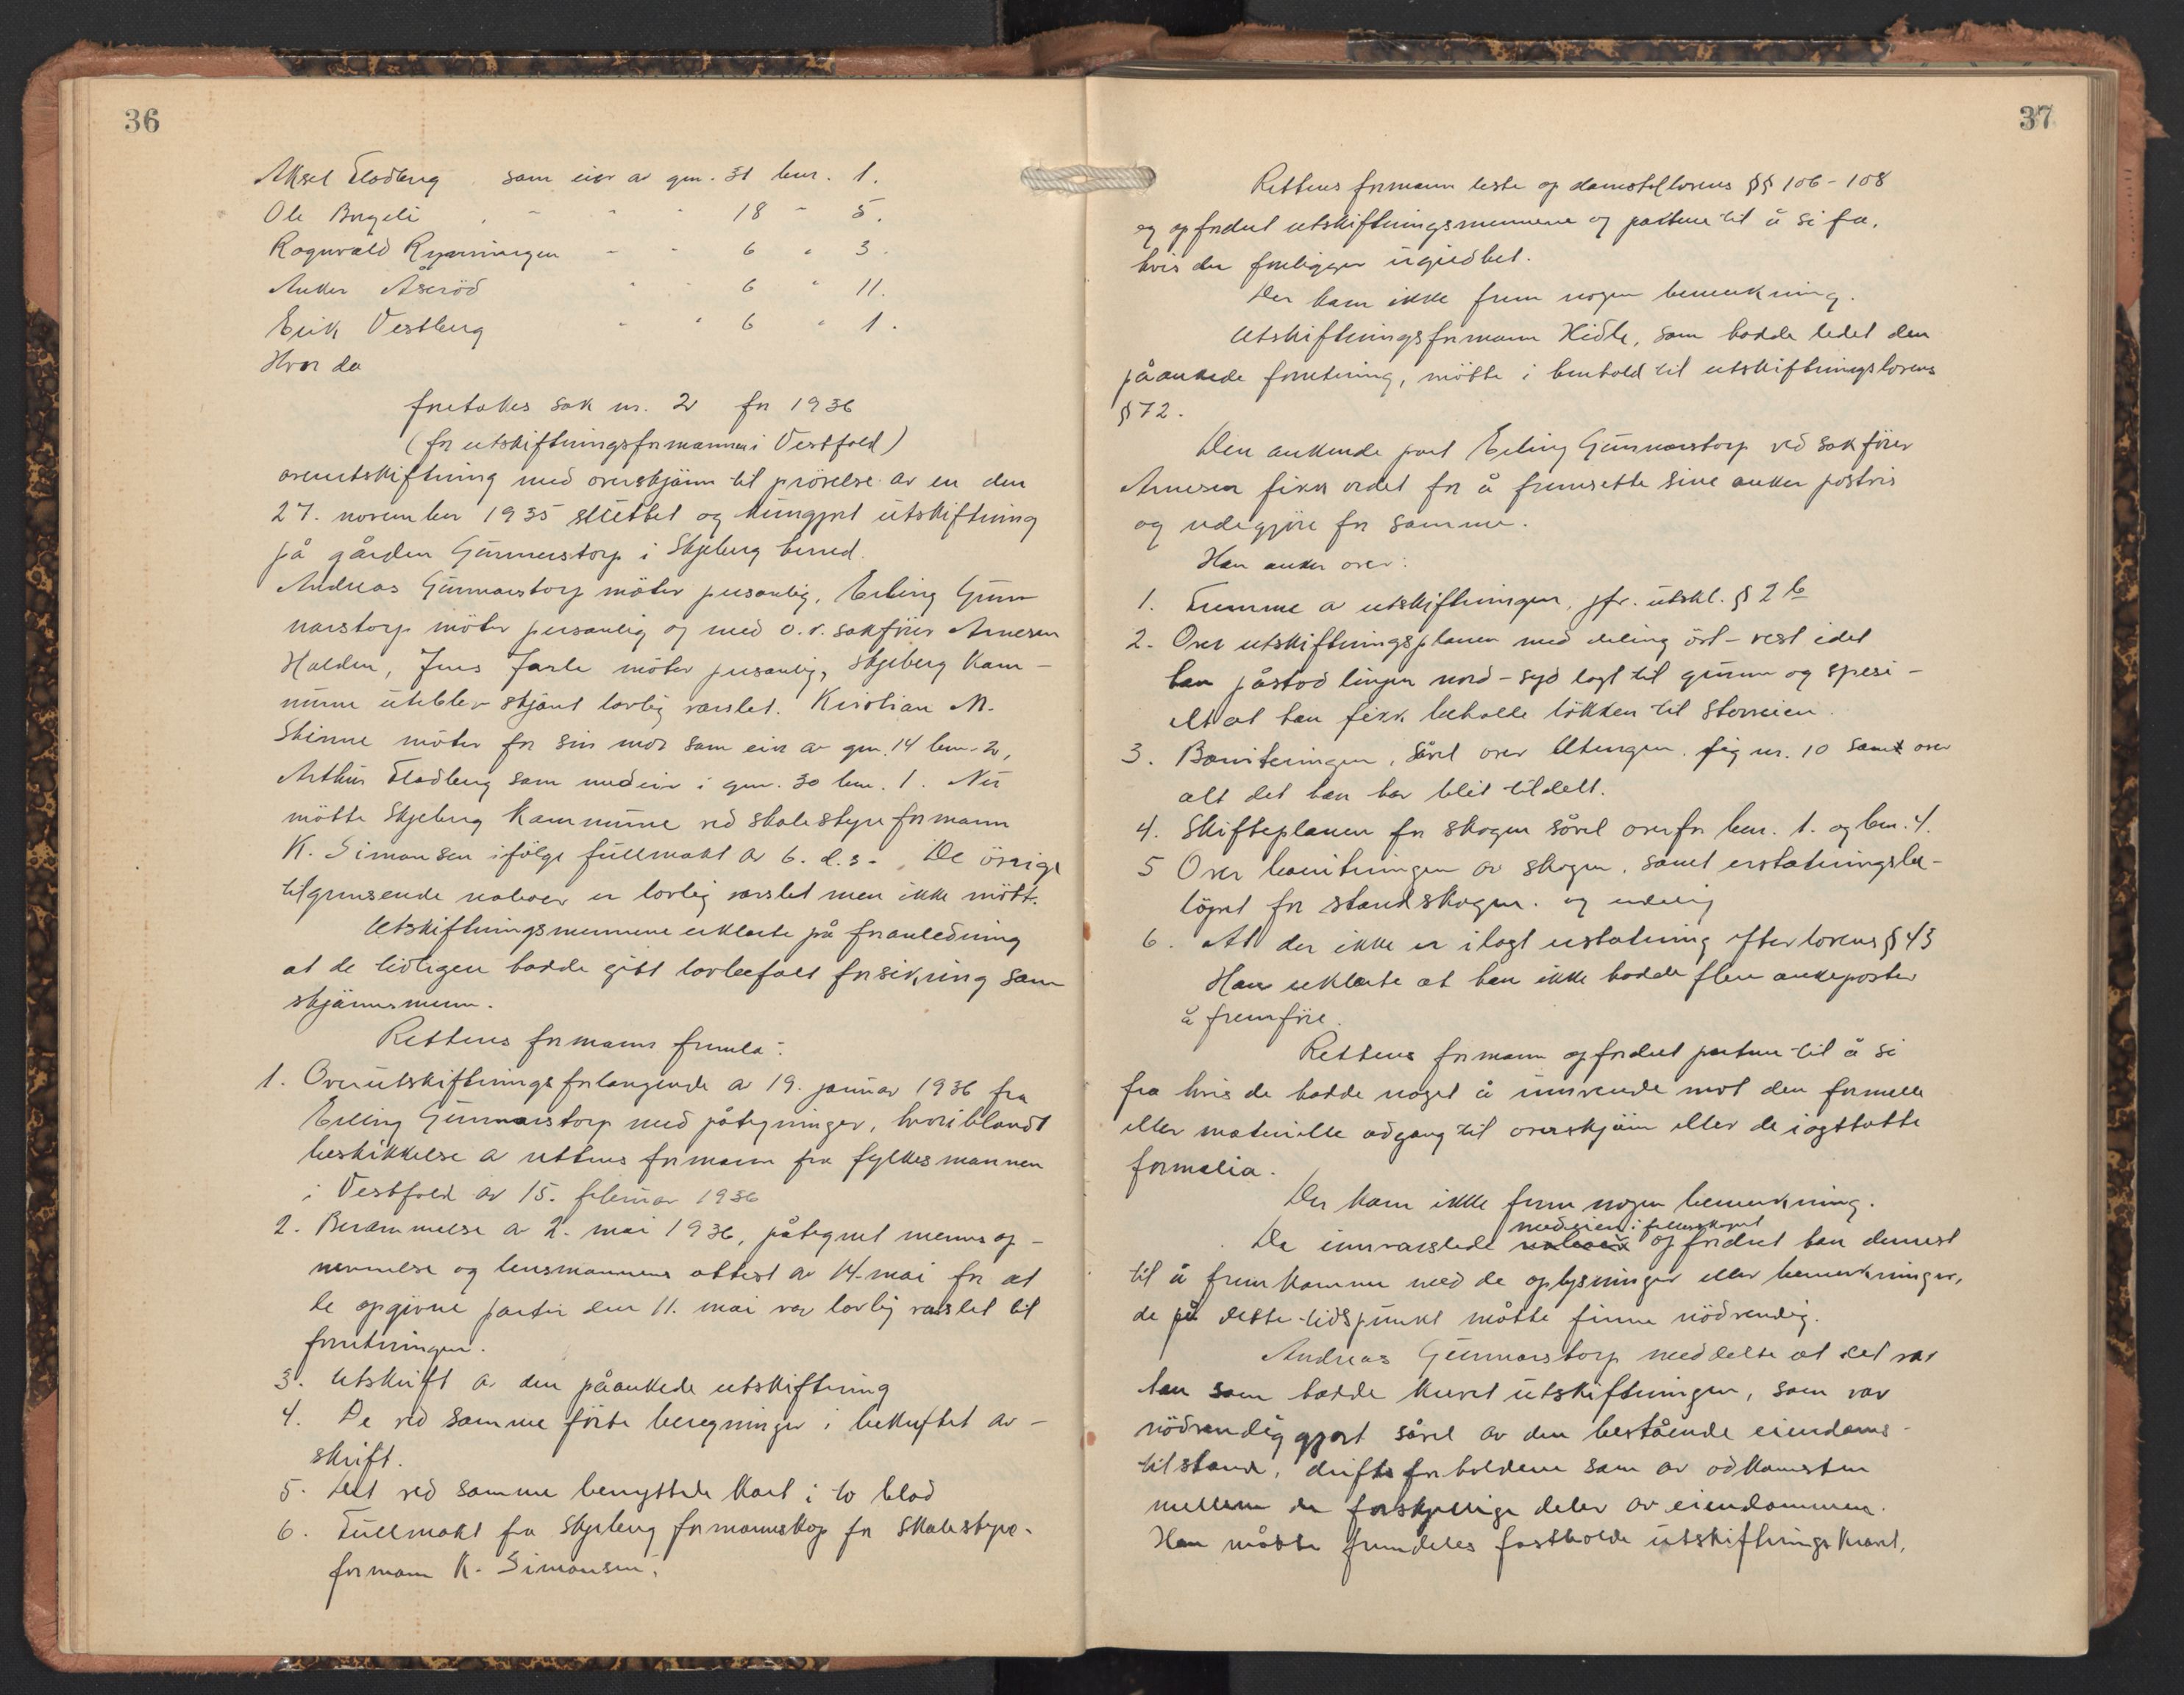 36
Aksel Flodberg som eier av gnr. 31 bnr. 1.
Ole Borgeli " " " 18 " 5.
Rognvald Rynningen " " 6 " 3.
Anker Åseröd " " 6 " 11.
Erik Vestberg " " 6 " 1.
Hvor da
foretokes sak nr. 2 for 1936
(for utskiftningsformannen i Vestfold)
overutskiftning med overskjönn til prövelse av en den
27. november 1935 sluttet og kunngjort utskiftning
på gården Gunnarstorp i Skjeberg herred.
Andreas Gunnarstorp möter personlig, Erling Gun-
narstorp möter personlig og med o.r. sakförer Arnesen
Halden, Jens Jarle möter personlig, Skjeberg Kom-
mune uteblev skjönt lovlig varslet. Kristian M.
Skinne möter for sin mor som eier av gnr. 14 bnr. 2,
Arthur Flodberg som medeier i gnr. 30 bnr. 1. Nu
mötte Skjeberg Kommune ved skolestyreformann
K. Simonsen ifölge fullmakt av 6. d.s. De övrige
tilgrensende naboer er lovlig varslet men ikke mött.
Utskiftningsmennene erklærte på foranledning
at de tidligere hadde gitt lovbefalt forsikring som
skjönnsmenn.
Rettens formann fremla:
1. Overutskiftningsforlangende av 19. januar 1936 fra
Erling Gunnarstorp med påtegninger, hvoriblandt
beskikkelse av rettens formann fra fylkesmannen
i Vestfold av 15. februar 1936
2. Berammelse av 2. mai 1936, påtegnet mennsop-
nevnelse og lensmannens attest av 14. mai for at
de opgivne parter den 11. mai var lovlig varslet til
forretningen.
3. Utskrift av den påankede utskiftning
4. De ved samme förte beregninger i bekreftet av-
skrift.
5. Det ved samme benyttede kart i to blad
6. Fullmakt fra Skjeberg formannskap for skolestyre-
formann K. Simonsen.
37
Rettens formann leste op domstollovens §§ 106-108
og opfordret utskiftningsmennene og partene til å si fra,
hvis der foreligger ugildhet.
Der kom ikke frem nogen bemerkning.
Utskiftningsformann Hidle, som hadde ledet den
påankede forretning, mötte i henhold til utskiftningslovens
§ 72.
Den ankende part Erling Gunnarstorp ved sakförer
Arnesen fikk ordet for å fremsette sine anker postvis
og redegjöre for samme.
Han anker over:
1. Fremme av utskiftningen, jfr. utskl. § 2 b
2. Over utskiftningsplanen med deling öst-vest idet
han påstod linjen nord-syd lagt til grunn og spesi-
elt at han fikk beholde lökken til Storveien.
3. Boniteringen, såvel over Utengen fig nr. 10 samt over
alt det han har blit tildelt.
4. Skifteplanen for skogen såvel overfor bnr. 1. og bnr. 4.
5 Over boniteringen av skogen, samt erstatningsbe-
löpet for standskogen. og endelig
6. At der ikke er ilagt erstatning efter lovens § 43
Han erklærte at han ikke hadde flere ankeposter
å fremföre.
Rettens formann opfordret partene til å si
fra hvis de hadde noget å innvende mot den formelle
eller materielle adgang til overskjönn eller de iagttatte
formalia.
Der kom ikke frem nogen bemerkning.
medeiere i fellesskapet
De innvarslede naboer opfordret han dernest
til å fremkomme med de oplysninger eller bemerkninger,
de på dette tidspunkt måtte finne nödvendig.
Andreas Gunnarstorp meddelte at det var
han som hadde krevet utskiftningen, som var
nödvendiggjort såvel av den bestående eiendoms-
tilstand, driftsforholdene som av adkomsten
mellem de forskjellige deler av eiendommen.
Han måtte fremdeles fastholde utskiftningskravet,